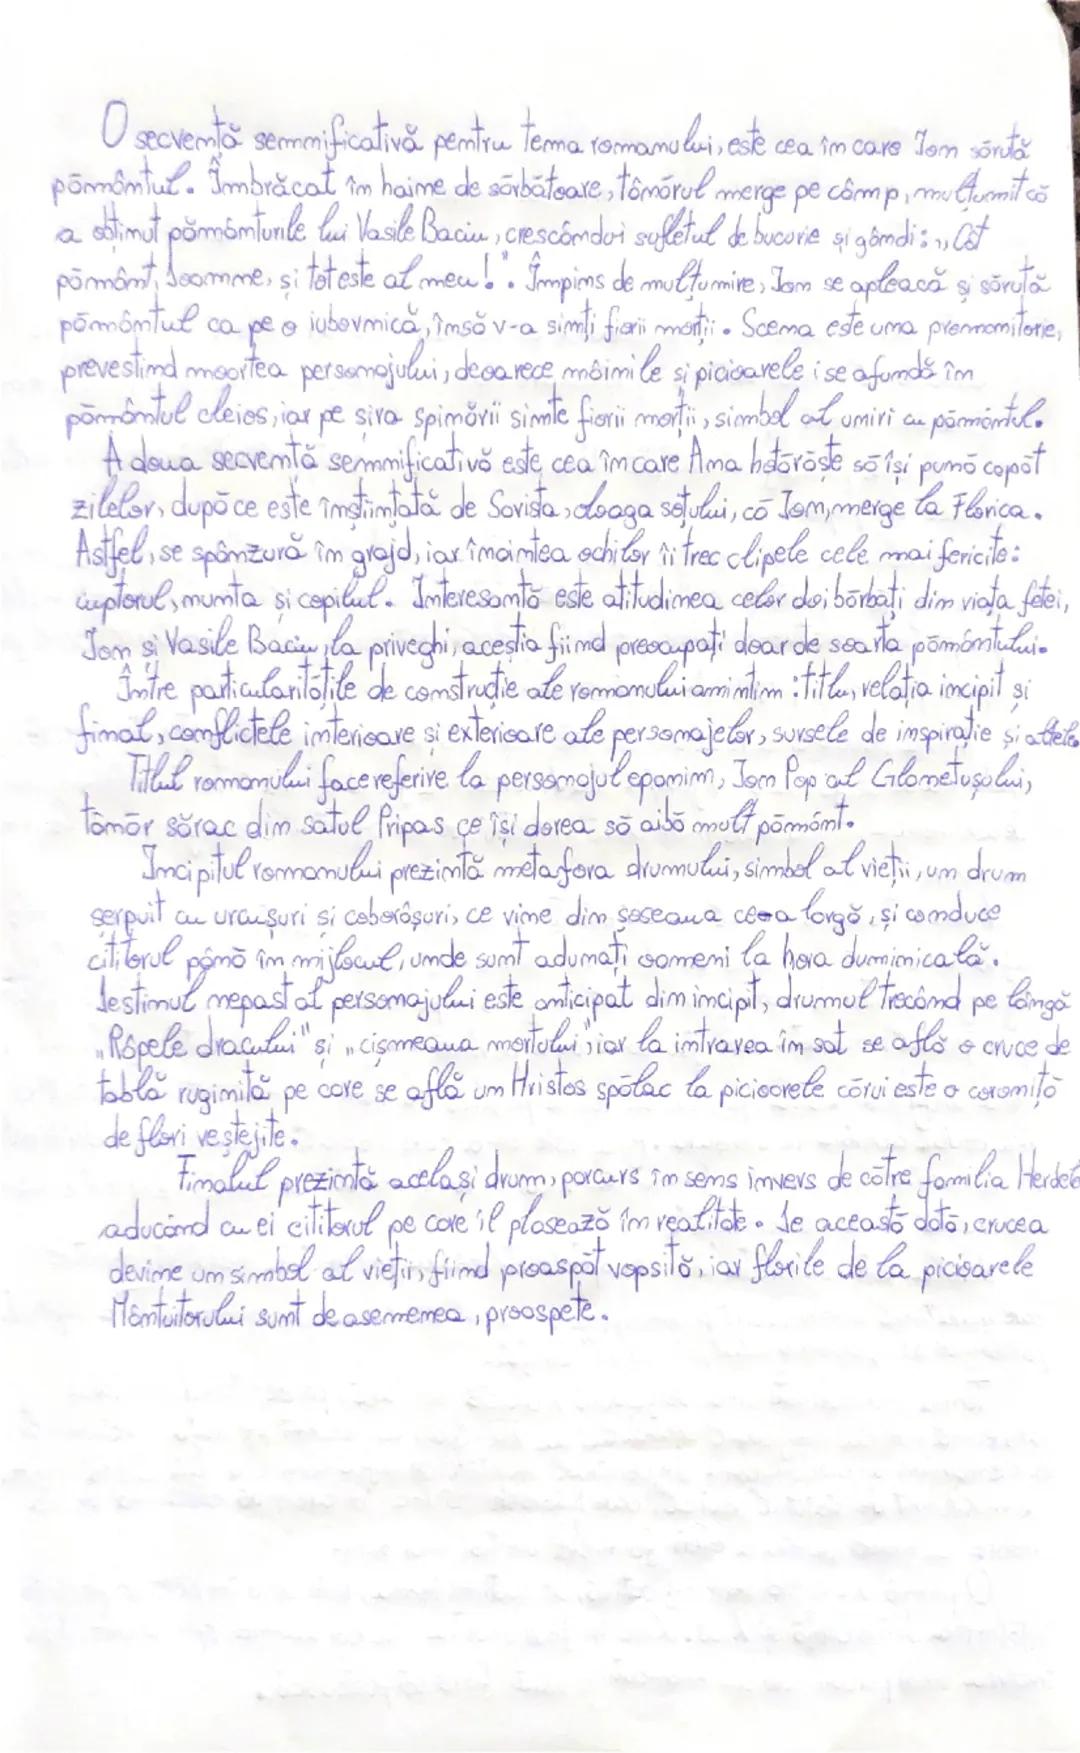 O secvență semnificativă pentru tema romanului, este cea în care Ion sărută
pământul. Îmbrăcat în haine de sărbătoare, tânărul merge pe câmp, mulțumit că
a obținut pământurile lui Vasile Baciu, crescându-i sufletul de bucurie și gândi: „Cât
pământ, Doamne, și tot este al meu!". Împins de mulțumire, Ion se apleacă și sărută
pământul ca pe o iubovnică, însă v-a simți fiorii morții. Scena este una premonitorie,
prevestind moartea personajului, deoarece mâinile și picioarele i se afundă în
pământul cleios, iar pe șira spinării simte fiorii morții, simbol al uniri cu pământul.
A doua secvență semnificativă este cea în care Ana hotărăște să își pună capăt
zilelor, după ce este înștiințată de Savista, oloaga satului, că Ion, merge la Florica.
Astfel, se spânzură în grajd, iar înaintea ochilor îi trec clipele cele mai fericite:
cuptorul, nunta și copilul. Interesantă este atitudinea celor doi bărbați din viața fetei,
Ion și Vasile Baciu, la priveghi, aceștia fiind preocupați doar de soarta pământului.
Între particularitățile de construcție ale romanului amintim: titlu, relația incipit și
final, conflictele interioare și exterioare ale personajelor, sursele de inspirație și altele.
Titlul romanului face referire la personajul eponim, Ion Pop al Glanetașului,
tânăr sărac din satul Pripas ce își dorea să aibă mult pământ.
Incipitul romanului prezintă metafora drumului, simbol al vieții, un drum
șerpuit cu urcușuri și coborâșuri, ce vine din șoseaua cea largă, și conduce
cititorul până în mijlocul, unde sunt adunați oameni la hora duminicală.
Destinul nepast al personajului este anticipat din incipit, drumul trecând pe lângă
„Râpele dracului" și „cișmeaua mortului", iar la intrarea în sat se află o cruce de
tablă ruginită pe care se află un Hristos spălac la picioarele cărui este o coroniță
de flori veștejite.
Finalul prezintă același drum, parcurs în sens invers de către familia Herdelea
aducând cu ei cititorul pe care îl plasează în realitate. De această dată, crucea
devine un simbol al vieții, fiind proaspăt vopsită, iar florile de la picioarele
Mântuitorului sunt de asemenea, proaspete.